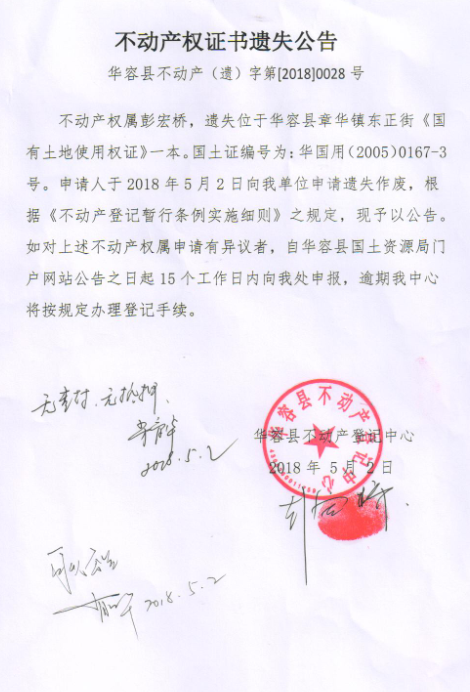 不动产权证书遗失公告
华容县不动产（遗）字第[2018]0028 号
不动产权属彭宏桥，遗失位于华容县章华镇东正街《国
有土地使用权证》一本。国土证编号为：华国用（2005）0167-3
号。申请人于 2018 年 5 月 2 日向我单位申请遗失作废，根
据《不动产登记暂行条例实施细则》之规定，现予以公告。
如对上述不动产权属申请有异议者，自华容县国土资源局门
户网站公告之日起 15 个工作日内向我处申报，逾期我中心
将按规定办理登记手续。
无查封、无抵押
2018.5.2
华容县不动产登记中心
华容县不动产登记中心
2018 年 5 月 2 日
可以公告
2018.5.2